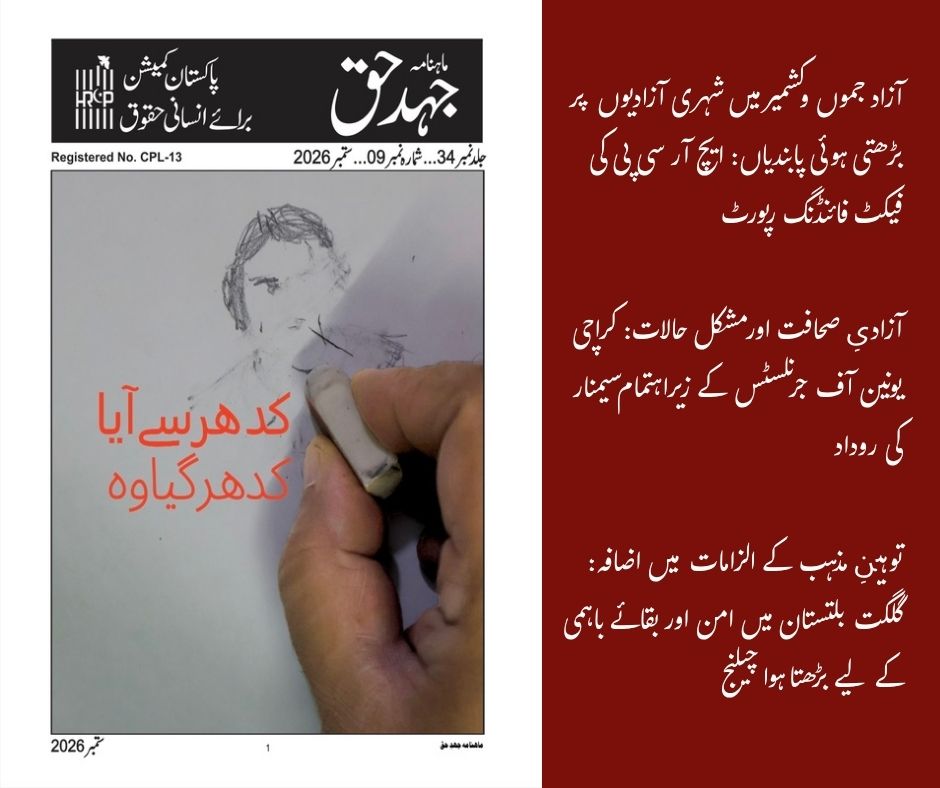 ماہنامہ
جہد حق
پاکستان کمیشن
برائے انسانی حقوق
HRCP
Registered No. CPL-13
جلد نمبر 34...شمارہ نمبر 09...ستمبر 2026
کدھر سے آیا
کدھر گیا وہ
ماہنامہ جہد حق
1
ستمبر 2026
آزاد جموں وکشمیر میں شہری آزادیوں پر
بڑھتی ہوئی پابندیاں: ایچ آر سی پی کی
فیکٹ فائنڈنگ رپورٹ
آزادیِ صحافت اور مشکل حالات: کراچی
یونین آف جرنلسٹس کے زیراہتمام سیمنار
کی روداد
توہینِ مذہب کے الزامات میں اضافہ:
گلگت بلتستان میں امن اور بقائے باہمی
کے لیے بڑھتا ہوا چیلنج